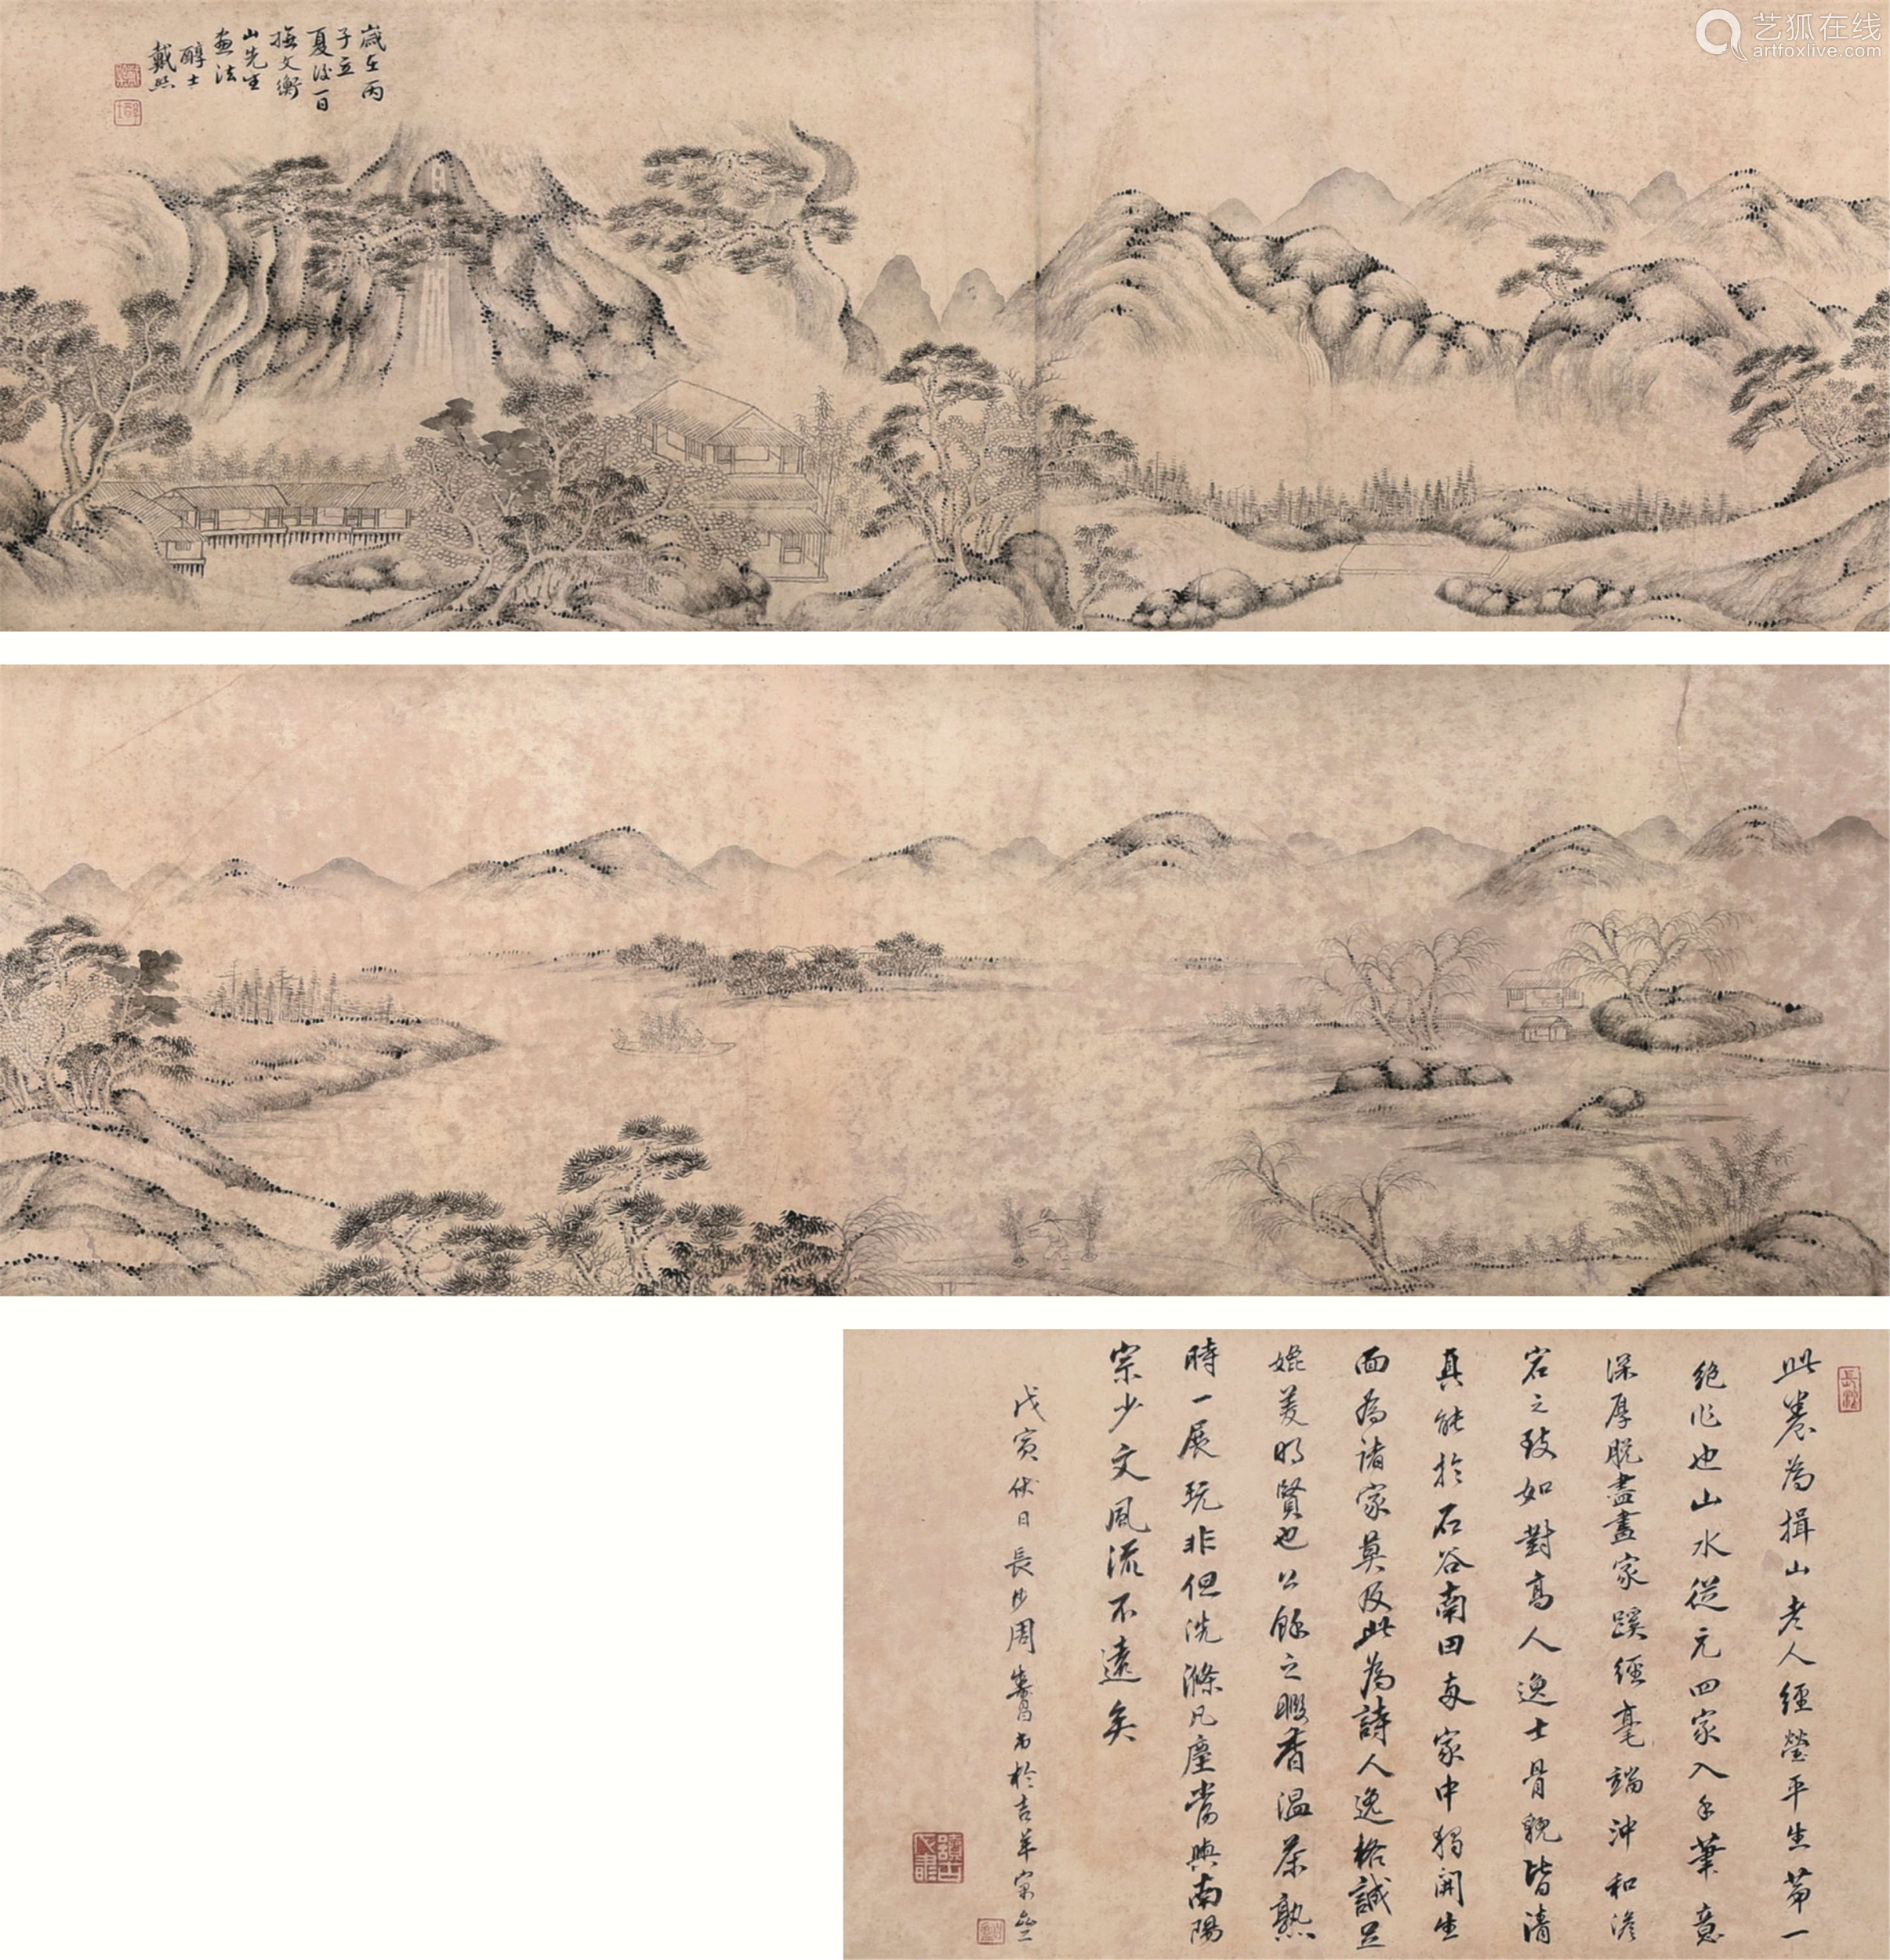 艺狐在线
artfoxlive.com
歲在丙
子立
夏後一日
撫文衡
山先生
畫法
醇士
戴熙
此卷為揖山老人經營平生第一
絶作也山水從元四家入手筆意
深厚脱盡畫家蹊徑毫端沖和澹
宕之致如對高人逸士骨貌皆清
真能於石谷南田兩家中獨開生
面為諸家莫及此為詩人逸格誠足
媲美明賢也公餘之暇香温茶熟
時一展玩非但洗滌凡塵當與南陽
宗少文風流不遠矣
戊寅伏日長沙周壽昌書於吉羊室